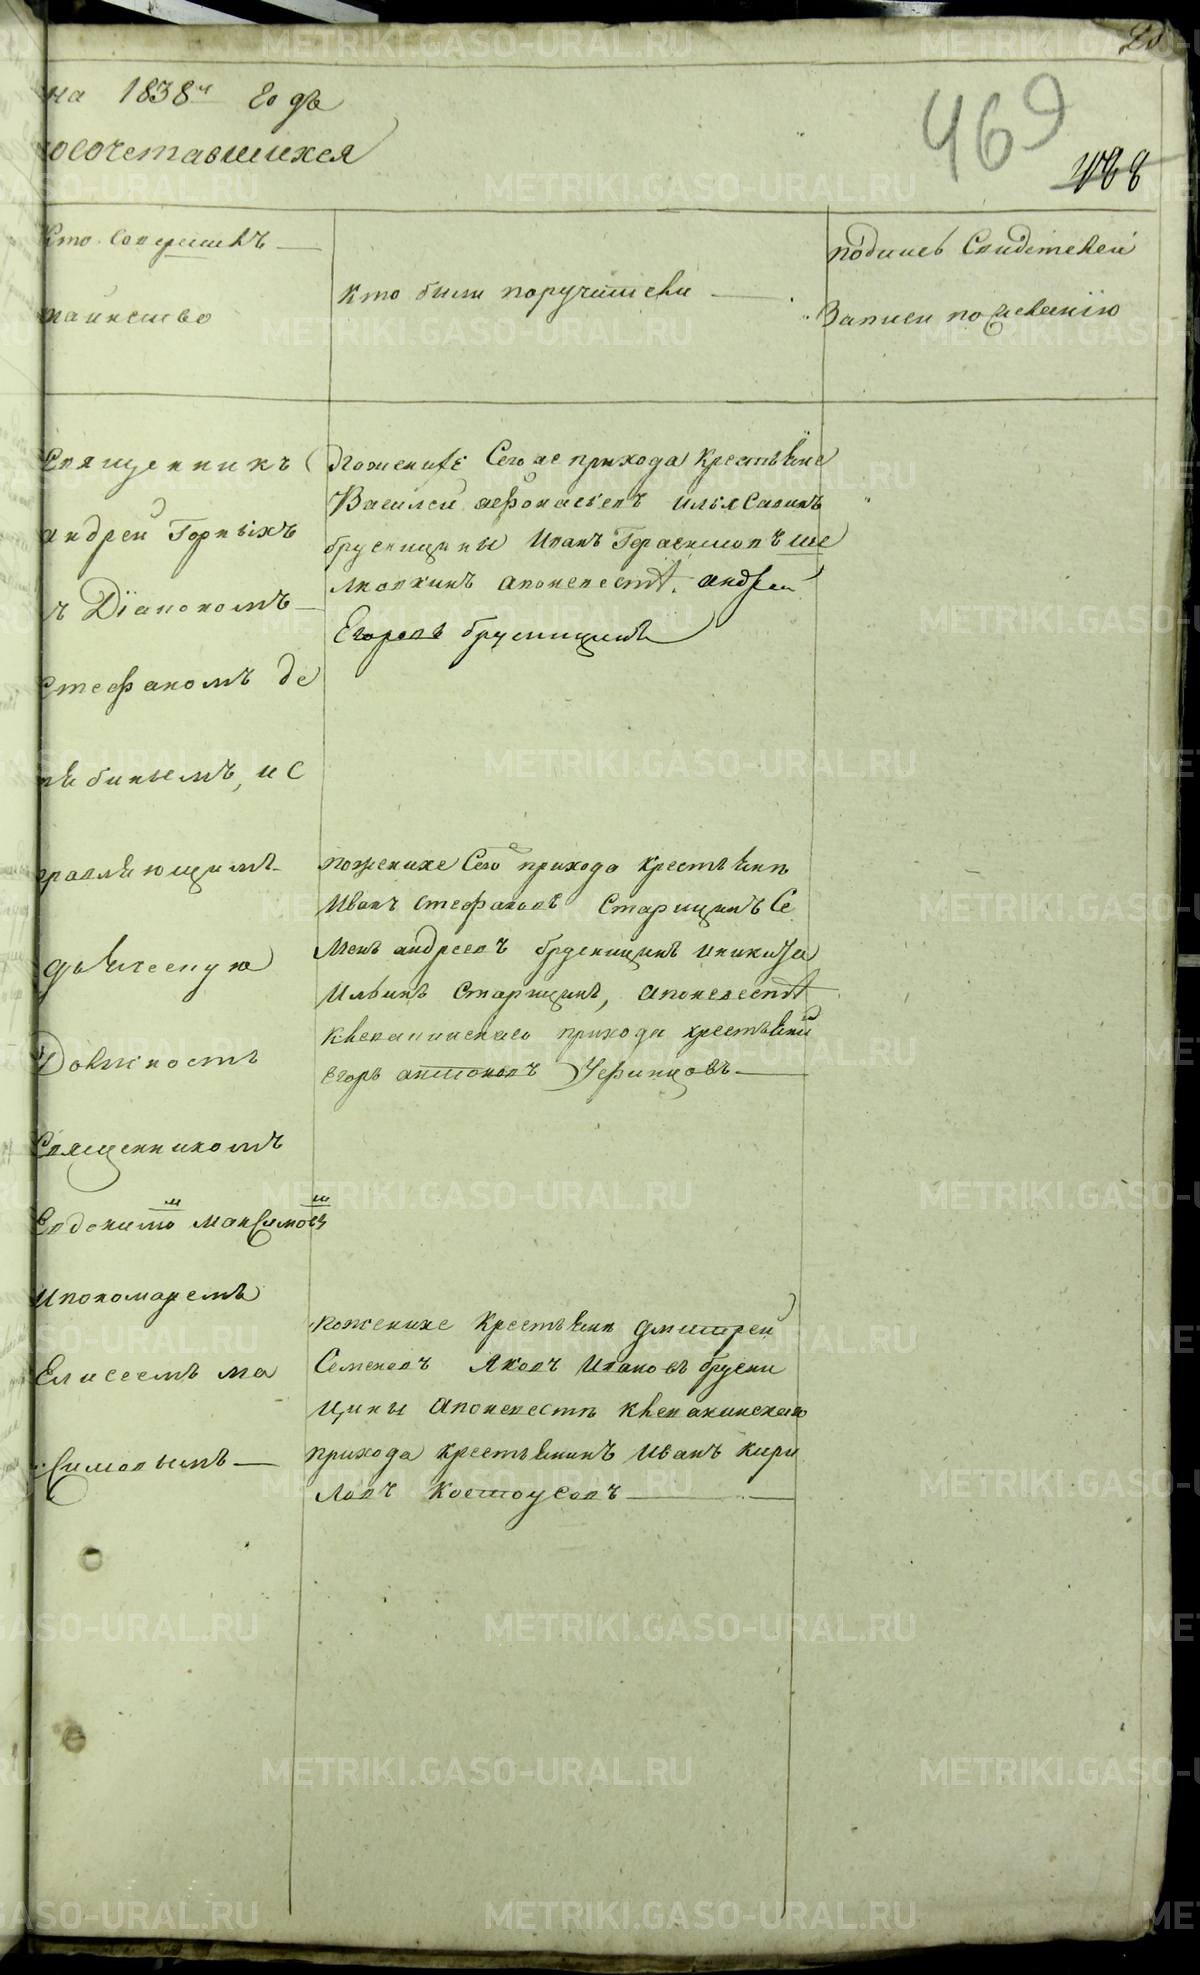 на 1838й Годъ
469
488
осочетавшихся
Кто совершилъ
таинство
кто были поручители
подпись Свидетелей
Записи по желанiю
Священникъ
андрей Горныхъ
ъ Дiакономъ
Стефаномъ Де
бинымъ, и С
правляющимъ
дьяческую
Должность
Священникомъ
Евдокимомъ Максимовымъ
ипономаремъ
Елисеемъ Ма
Симовымъ
Пожениху Сегоже прихода Крестьяне
Василей афонасьевъ илья Савинъ
брусницины Иванъ Герасимовъ ше
лковкинъ апоневесте андрей
Егоровъ брусницинъ
поженихе Сего прихода крестьянинъ
Иванъ Стефановъ Старицинъ Се
менъ андреевъ брусницинъ иникита
Ильинъ Старицинъ, апоневесте
клевакинскаго прихода крестьянинъ
Егоръ антоновъ Уфинцовъ
поженихе Крестьянинъ дмитрей
Семеновъ Яковъ Ивановъ брусни
цины апоневесте клевакинскаго
прихода крестьянинъ Иванъ Кири
ловъ Костоусовъ
METRIKI.GASO-URAL.RU